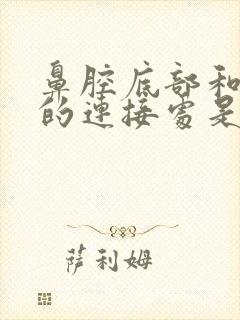 鼻腔底部和
的连接处是
萨利姆